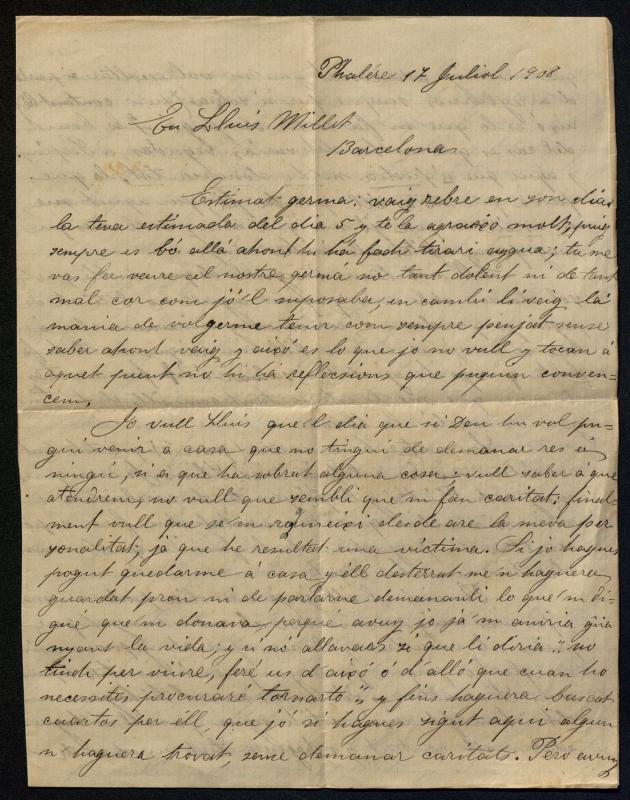 Phalére 17 Juliol 1908
En Lluis Millet
Barcelona
Estimat germa: vaig rebre en son dia
la teva estimada del dia 5 y te la agraeixo molt, puig
sempre es bó allá ahont hi há foch tirari aygua; tu me
vas fer veure al nostre germa no tant dolent ni de tant
mal cor com jó'l suposaba, en cambi li veig la
mania de volguerme tenir com sempre penjat sense
saber ahont vaig y aixó es lo que jo no vull y tocan á
aquet punt no hi há reflecsions que puguin conven-
cem.
Jo vull Lluis que'l dia que si Deu ho vol pu-
gui venir á casa que no tingui de demanar res á
ningú, si es que ha sobrat alguna cosa: vull saber á que
atendrem, no vull que sembli que'm fan caritat: final-
ment vull que se'm regoneixi desde are la meva per
sonalitat; já que he resultat una víctima. Si jo hagues
pogut quedarme á casa y éll desterrat me'n haguera
guardat prou ni de parlarne demenanli lo que'm di-
gué que'm donava, perqué avuy jo já m aniria gua
nyant la vida; y si nó allavors si que li diria: "no
tinch per viure, feré us d'aixó ó d'alló que cuan ho
necessitis procuraré tornarto", y fins haguera buscat
cuartos per éll, que jó si hagues sigut aqui algun
n haguera trovat, sense demanar caritats. Peró avuy